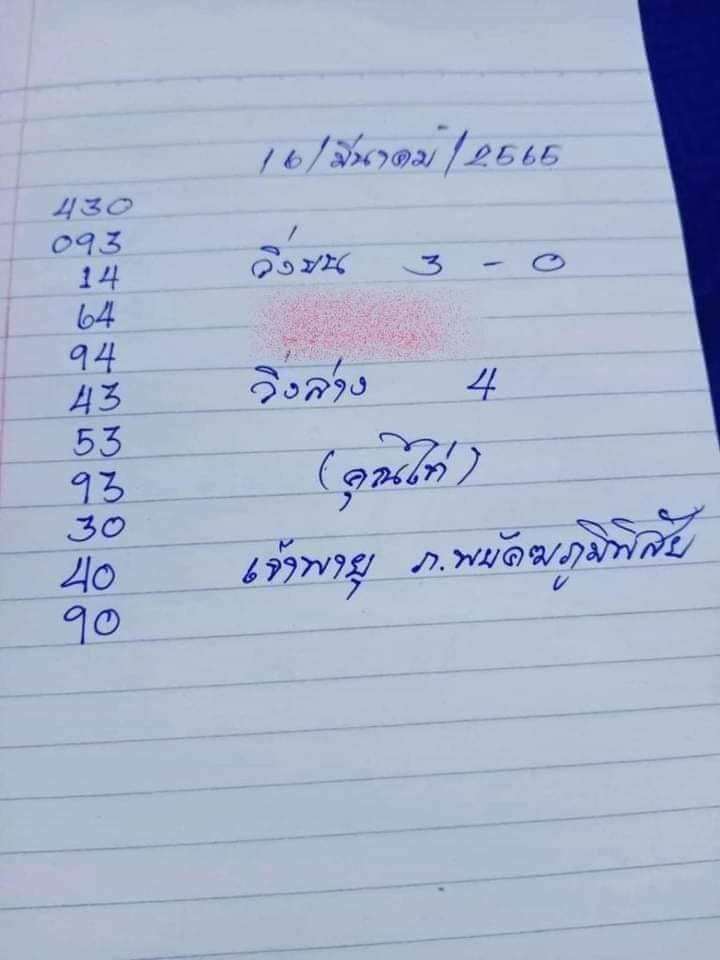 16/มีนาคม/2565
430
093
14
64
94
43
53
93
30
40
90
วิ่งบน 3 - 0
วิ่งล่าง 4
(คุณไก่)
เจ้าพายุ ภ.พยัคฆภูมิพิสัย